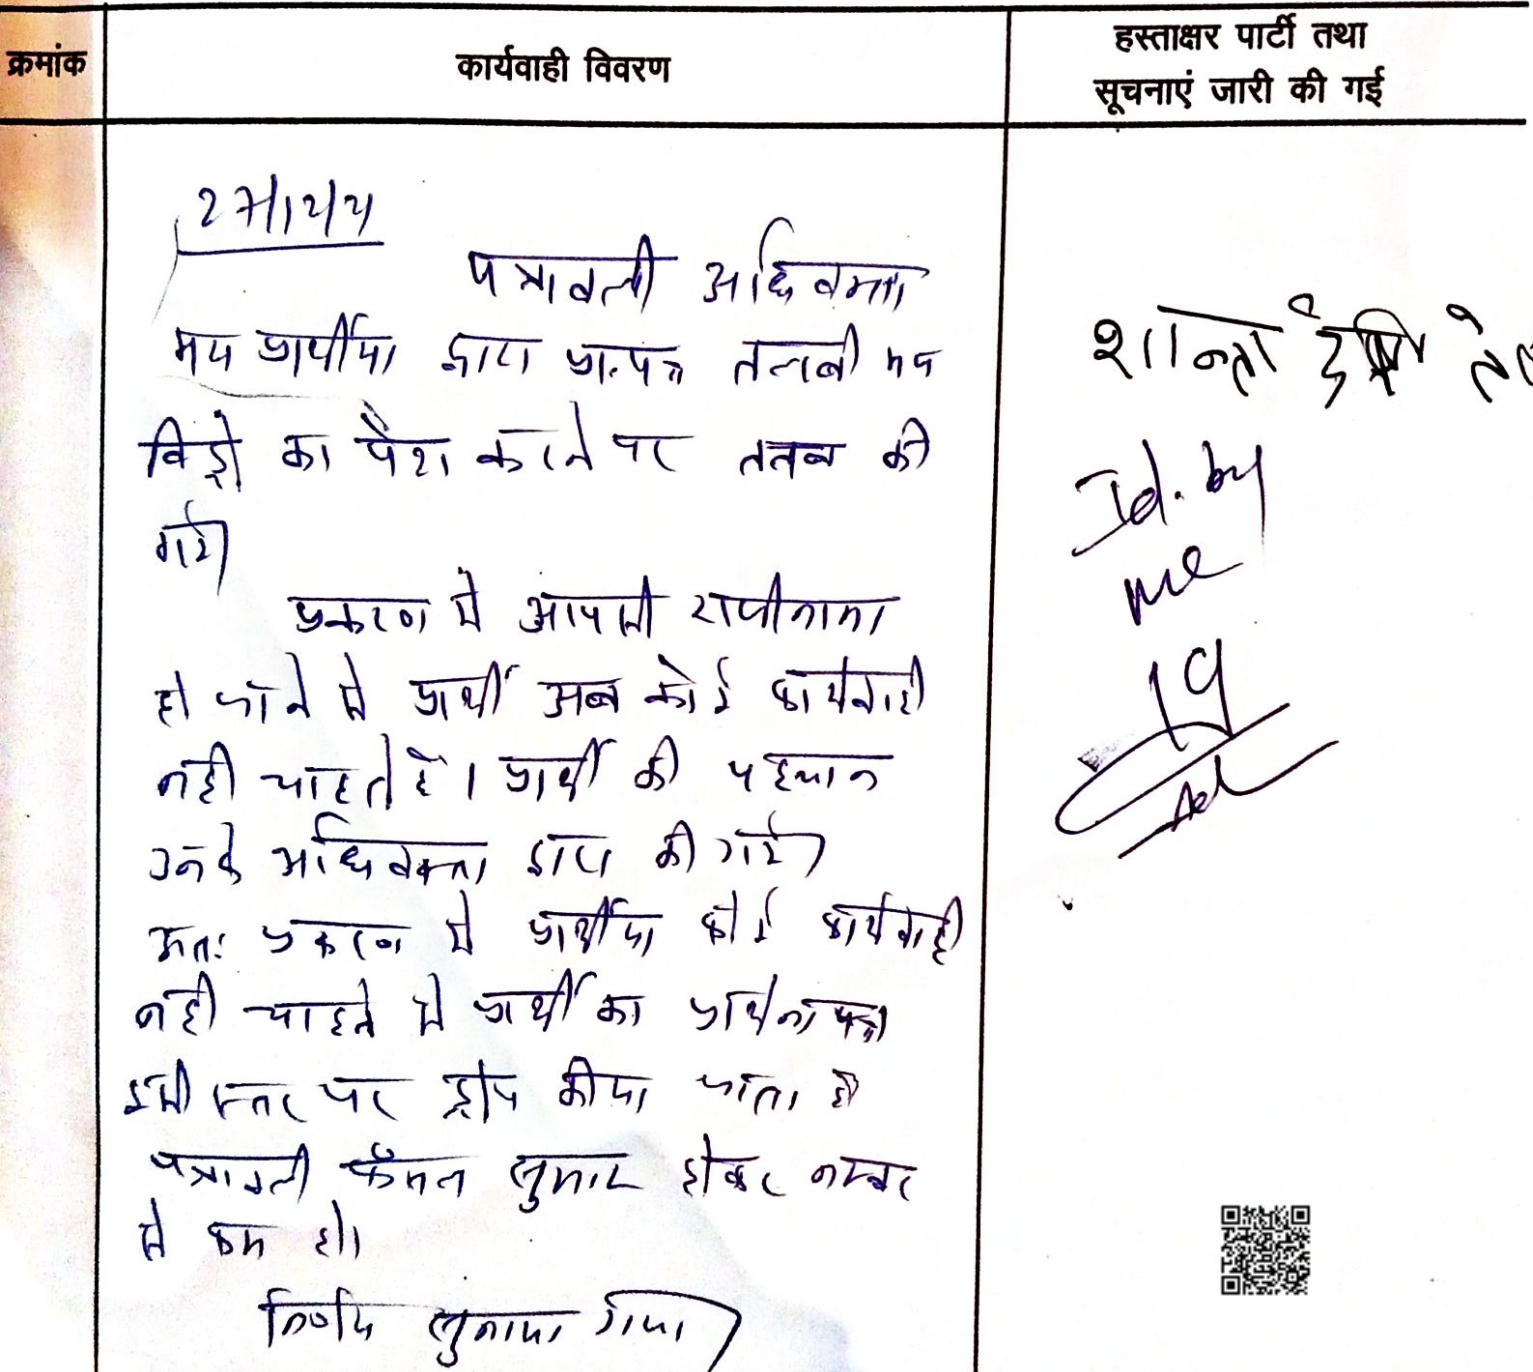 क्रमांक
कार्यवाही विवरण
हस्ताक्षर पार्टी तथा
सूचनाएं जारी की गई
पत्रावली अधिवक्ता
मय प्रार्थीया द्वारा प्रा.पत्र तलबी मय
विड्रो का पेश करने पर तलब की
गई।
प्रकरण मे आपसी राजीनामा
हो जाने से प्रार्थी अब कोई कार्यवाही
नही चाहते है। प्रार्थी की पहचान
उनके अधिवक्ता द्वारा की गई।
अतः प्रकरण मे प्रार्थीया कोई कार्यवाही
नही चाहने से प्रार्थी का प्रार्थना पत्र
इसी स्तर पर ड्रोप कीया जाता है
पत्रावली फैसल सुमार होकर नम्बर
से कम हो।
निर्णय सुनाया गया।
शान्ता देवी
Id. by
me